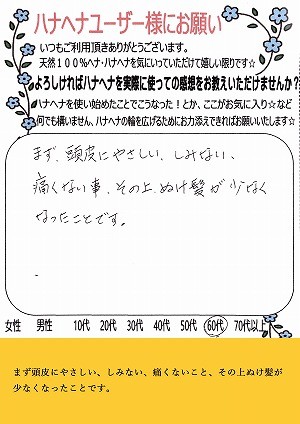 ハナヘナユーザー様にお願い
いつもご利用頂きありがとうございます。
天然100%ヘナ・ハナヘナを気にいっていただけて嬉しい限りです☆
よろしければハナヘナを実際に使っての感想をお教えいただけませんか?
ハナヘナを使い始めたことでこうなった!とか、ここがお気に入り☆など
何でも構いません、ハナヘナの輪を広げるためにお力添えできればお願いいたします☆
まず、頭皮にやさしい、しみない、
痛くない事、その上ぬけ髪が少なく
なったことです。
女性 男性 10代 20代 30代 40代 50代 60代 70代以上
まず頭皮にやさしい、しみない、痛くないこと、その上ぬけ髪が
少なくなったことです。